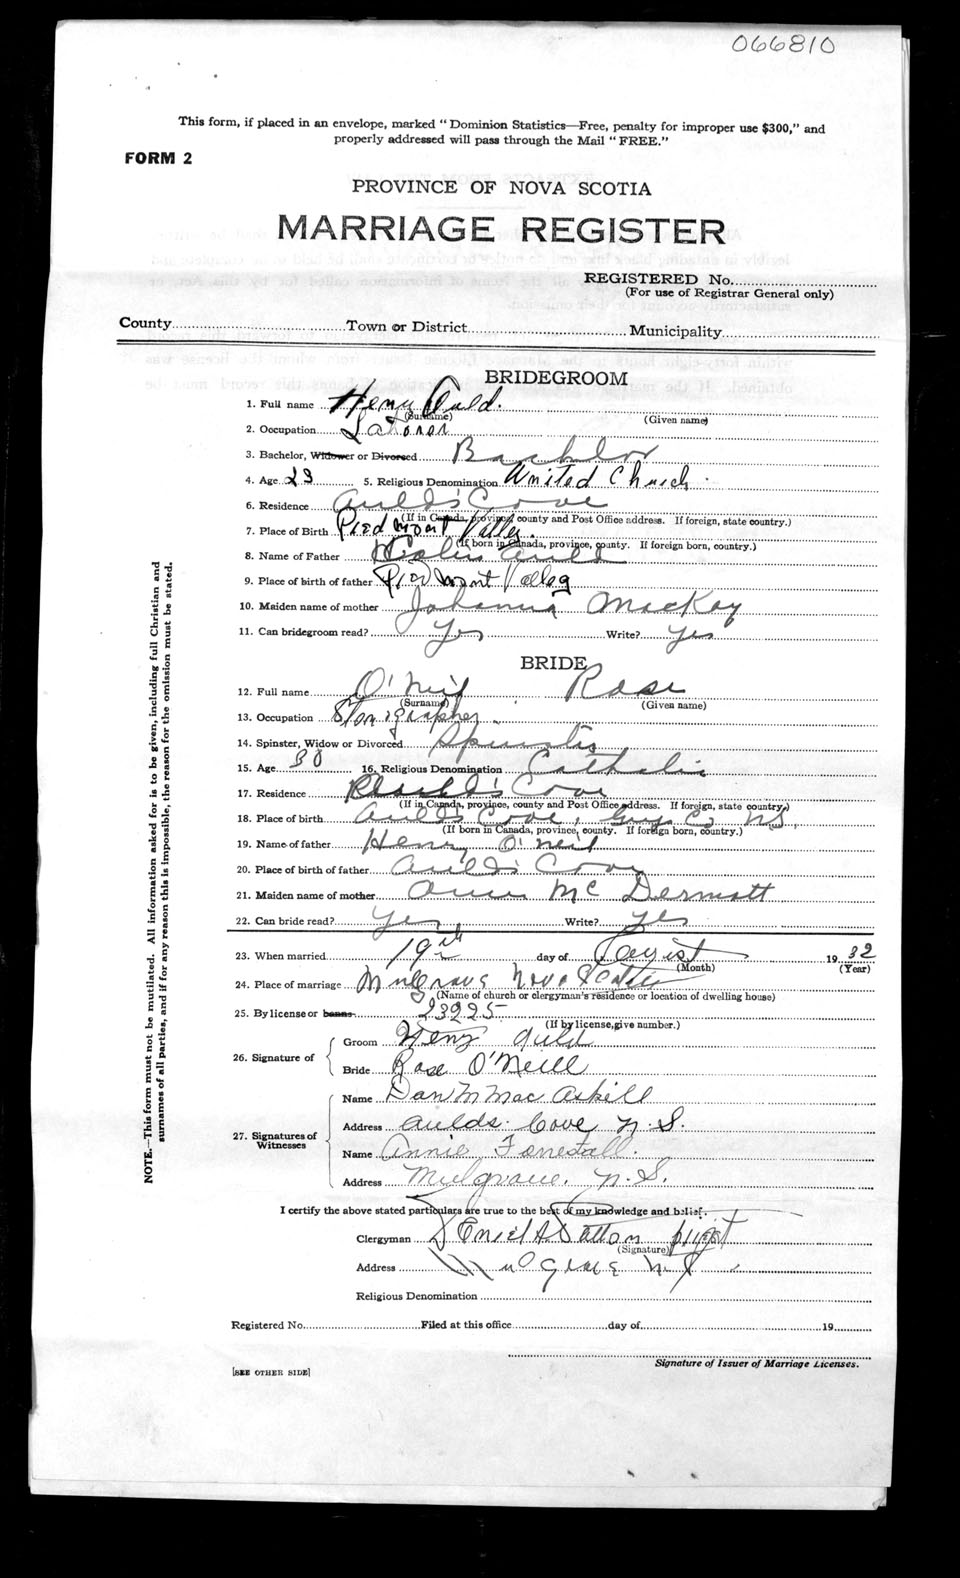 066810
This form, if placed in an envelope, marked “ Dominion Statistics—Free, penalty for improper use $300,” and
properly addressed will pass through the Mail “ FREE.”
FORM 2
PROVINCE OF NOVA SCOTIA
MARRIAGE REGISTER
REGISTERED No.
(For use of Registrar General only)
County Town or District Municipality
BRIDEGROOM
1. Full name Henry Auld.
(Surname) (Given name)
2. Occupation Laborer
3. Bachelor, Widower or Divorced Bachelor
4. Age 23 5. Religious Denomination United Church.
6. Residence Auld's Cove
(If in Canada, province, county and Post Office address. If foreign, state country.)
7. Place of Birth Piedmont Valley.
(If born in Canada, province, county. If foreign born, country.)
8. Name of Father Auld
9. Place of birth of father Piedmont Valley
10. Maiden name of mother Johanna MacKay
11. Can bridegroom read? Yes Write? Yes
BRIDE
12. Full name O'Neil Rose
(Surname) (Given name)
13. Occupation Stenographer
14. Spinster, Widow or Divorced Spinster
15. Age 30 16. Religious Denomination Catholic
17. Residence Auld's Cove
(If in Canada, province, county and Post Office address. If foreign, state country.)
18. Place of birth Auld's Cove, Guys Co NS,
(If born in Canada, province, county. If foreign born, country.)
19. Name of father Henry O'Neil
20. Place of birth of father Auld's Cove
21. Maiden name of mother Ann McDermott
22. Can bride read? Yes Write? Yes
23. When married 19th day of August 1932
(Month) (Year)
24. Place of marriage Mulgrave Nova Scotia
(Name of church or clergyman's residence or location of dwelling house)
25. By license or banns 23225
(If by license, give number.)
26. Signature of
Groom Henry Auld
Bride Rose O'Neill
27. Signatures of Witnesses
Name Dan M MacAskill
Address Aulds Cove N.S.
Name Annie Forestall.
Address Mulgrave. N.S.
I certify the above stated particulars are true to the best of my knowledge and belief.
Clergyman
(Signature)
Address Mulgrave N S
Religious Denomination
Registered No. Filed at this office day of 19
Signature of Issuer of Marriage Licenses.
[SEE OTHER SIDE]
NOTE.—This form must not be mutilated. All information asked for is to be given, including full Christian and
surnames of all parties, and if for any reason this is impossible, the reason for the omission must be stated.